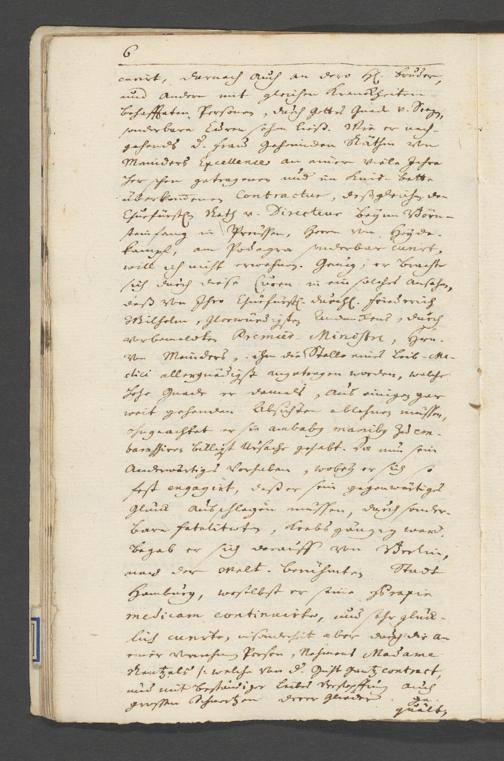 6
curirt, darnach auch an dero H. Bruder,
und andern mit gleichen Kranckheiten
behafften Personen, durch Gottes Gnad u. Segen,
sonderbare Curen sehen ließ. Wie er nach-
gehends d. Frau Geheimden Räthin von
Meinders Excellence an einer viele Jahre
her schon getragenen und im Knie
überkommenen Contractur, deßgleichen den
Churfürstl. Rath u. Directeur beym Börn-
steinfang in Preussen, Herrn von Heyde-
kampf, am Podagra sonderbar curirt,
will ich nicht erwehnen. Genug, er brachte
sich durch diese Curen in ein solches Ansehen,
daß von Ihro Churfürstl. Durchl. Friederich
Wilhelm, Glorwürdigsten Andenckens, durch
vorbemeldten Premier-Ministre, Hrn.
von Meinders, ihm die Stelle eines Leib-Me-
dici allergnädigst angetragen worden, welche
hohe Gnade er damals, aus einigen gar
weit gehenden Absichten ablehnen müssen,
ohngeachtet er sie
billigst Ursache gehabt. Da nun sein
Anderwärtiges Vorhaben, wobey er sich so
fest engagirt, daß er sein gegenwärtiges
Glück ausschlagen müssen, durch sonder-
bare Fatalitäten, krebsgängig ward,
begab er sich darauff von Berlin,
nach der Welt-berühmten Stadt
Hamburg, woselbst er seine Therapia
medicam continuirte, und sehr glück-
lich curirte, insonderheit aber durch die an
einer vornehmen Person, Nahmens Madame
/: welche von d. Gicht gantz contract,
und mit beständiger Leibes Verstopffung auch
grossen Schmertzen derer Glieder
quält,